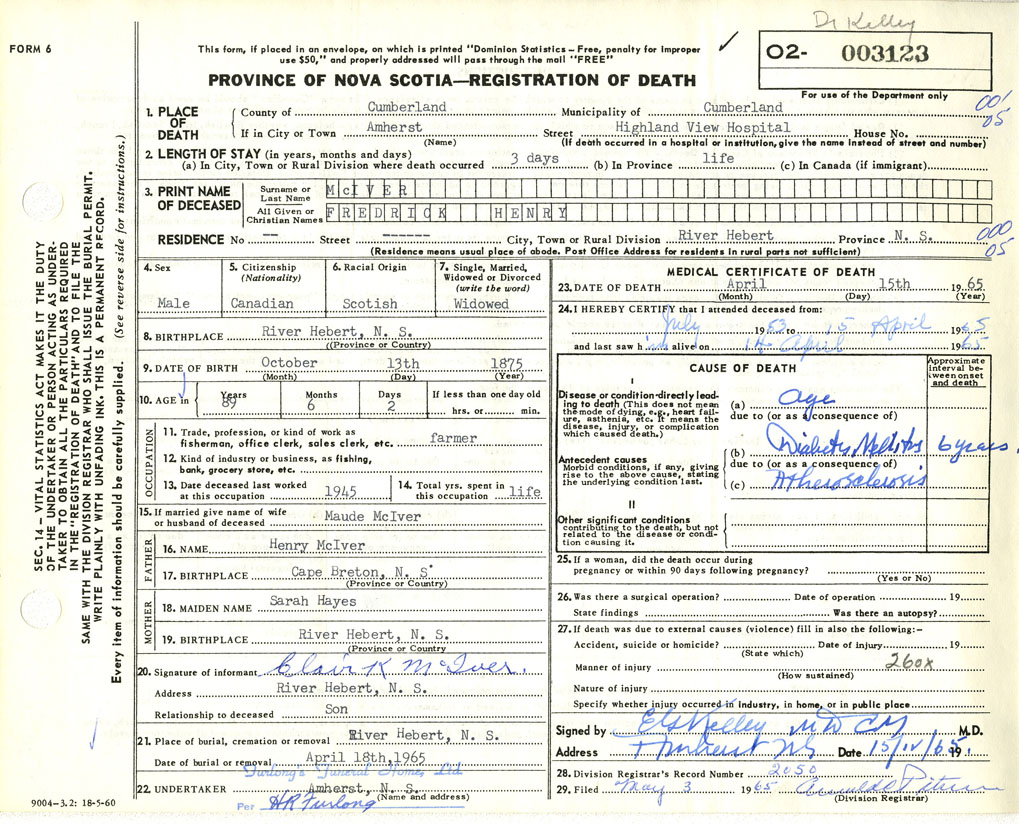 Dr Kelley
FORM 6
This form, if placed in an envelope, on which is printed "Dominion Statistics – Free, penalty for improper
use $50," and properly addressed will pass through the mail "FREE"
02- 003123
For use of the Department only
PROVINCE OF NOVA SCOTIA—REGISTRATION OF DEATH
001
05
1. PLACE OF DEATH
County of Cumberland Municipality of Cumberland
If in City or Town Amherst Street Highland View Hospital House No.
(Name) (If death occurred in a hospital or institution, give the name instead of street and number)
2. LENGTH OF STAY (in years, months and days)
(a) In City, Town or Rural Division where death occurred 3 days (b) In Province life (c) In Canada (if immigrant)
3. PRINT NAME OF DECEASED
Surname or Last Name McIVER
All Given or Christian Names FREDRICK HENRY
000
05
RESIDENCE No -- Street ------ City, Town or Rural Division River Hebert Province N. S.
(Residence means usual place of abode. Post Office Address for residents in rural parts not sufficient)
SEC. 14 – VITAL STATISTICS ACT MAKES IT THE DUTY
OF THE UNDERTAKER OR PERSON ACTING AS UNDER-
TAKER TO OBTAIN ALL THE PARTICULARS REQUIRED
IN THE "REGISTRATION OF DEATH" AND TO FILE THE
SAME WITH THE DIVISION REGISTRAR WHO SHALL ISSUE THE BURIAL PERMIT.
WRITE PLAINLY WITH UNFADING INK. THIS IS A PERMANENT RECORD.
Every item of information should be carefully supplied. (See reverse side for instructions.)
4. Sex
Male
5. Citizenship
(Nationality)
Canadian
6. Racial Origin
Scotish
7. Single, Married,
Widowed or Divorced
(write the word)
Widowed
8. BIRTHPLACE River Hebert, N. S.
((Province or Country)
9. DATE OF BIRTH October 13th 1875
(Month) (Day) (Year)
10. AGE in Years Months Days If less than one day old
89 6 2 hrs. or min.
OCCUPATION
11. Trade, profession, or kind of work as
fisherman, office clerk, sales clerk, etc. farmer
12. Kind of industry or business, as fishing,
bank, grocery store, etc.
13. Date deceased last worked
at this occupation 1945
14. Total yrs. spent in
this occupation life
15. If married give name of wife
or husband of deceased Maude McIver
FATHER
16. NAME Henry McIver
17. BIRTHPLACE Cape Breton, N. S
(Province or Country)
MOTHER
18. MAIDEN NAME Sarah Hayes
19. BIRTHPLACE River Hebert, N. S.
(Province or Country
20. Signature of informant Clair K McIver.
Address River Hebert, N. S.
Relationship to deceased Son
21. Place of burial, cremation or removal River Hebert, N. S.
Date of burial or removal April 18th, 1965
Furlong's Funeral Homes Ltd.
22. UNDERTAKER Amherst, N. S.
(Name and address)
Per HR Furlong
9004—3.2: 18-5-60
MEDICAL CERTIFICATE OF DEATH
23. DATE OF DEATH April 15th 1965
(Month) (Day) (Year)
24. I HEREBY CERTIFY that I attended deceased from:
July 1953 to 15 April 1965
and last saw him alive on 14 April 1965
CAUSE OF DEATH
Approximate
interval be-
tween onset
and death
I
Disease or condition directly lead-
ing to death (This does not mean
the mode of dying, e.g., heart fail-
ure, asthenia, etc. It means the
disease, injury, or complication
which caused death.)
(a) Age
due to (or as a consequence of)
Antecedent causes
Morbid conditions, if any, giving
rise to the above cause, stating
the underlying condition last.
(b) Diabetes Mellitus 6 years
due to (or as a consequence of)
(c) Atherosclerosis
II
Other significant conditions
contributing to the death, but not
related to the disease or condi-
tion causing it.
25. If a woman, did the death occur during
pregnancy or within 90 days following pregnancy?
(Yes or No)
26. Was there a surgical operation? Date of operation 19
State findings Was there an autopsy?
27. If death was due to external causes (violence) fill in also the following:–
Accident, suicide or homicide? Date of injury 19
(State which)
Manner of injury 260x
(How sustained)
Nature of injury
Specify whether injury occurred in industry, in home, or in public place
Signed by E G Kelley MD CM M.D.
Address Amherst NS Date 15/IV/65 19
28. Division Registrar's Record Number 2050
29. Filed May 3 1965
(Division Registrar)